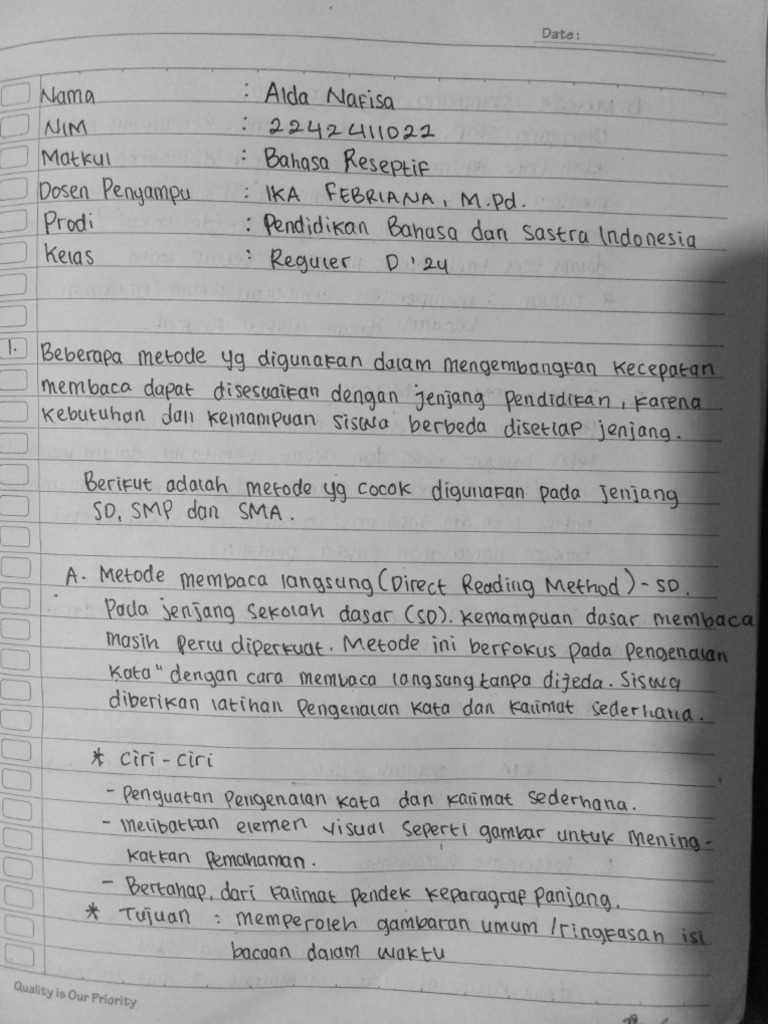 Date:
Nama : Alda Nafisa
NIM : 2242411022
Matkul : Bahasa Reseptif
Dosen Penyampu : IKA FEBRIANA, M.Pd.
Prodi : Pendidikan Bahasa dan Sastra Indonesia
Kelas : Reguler D '24
1. Beberapa metode yg digunakan dalam mengembangkan kecepatan
membaca dapat disesuaikan dengan jenjang pendidikan, karena
kebutuhan dan kemampuan siswa berbeda disetiap jenjang.
Berikut adalah metode yg cocok digunakan pada jenjang
SD, SMP dan SMA.
A. Metode membaca langsung (Direct Reading Method) - SD.
Pada jenjang sekolah dasar (SD). kemampuan dasar membaca
masih perlu diperkuat. Metode ini berfokus pada pengenalan
kata" dengan cara membaca langsung tanpa dijeda. Siswa
diberikan latihan pengenalan kata dan kalimat sederhana.
* Ciri - ciri
- Penguatan pengenalan kata dan kalimat sederhana.
- Melibatkan elemen visual seperti gambar untuk mening-
katkan pemahaman.
- Bertahap, dari kalimat pendek keparagraf panjang.
* Tujuan : memperoleh gambaran umum /ringkasan isi
bacaan dalam waktu
Quality is Our Priority